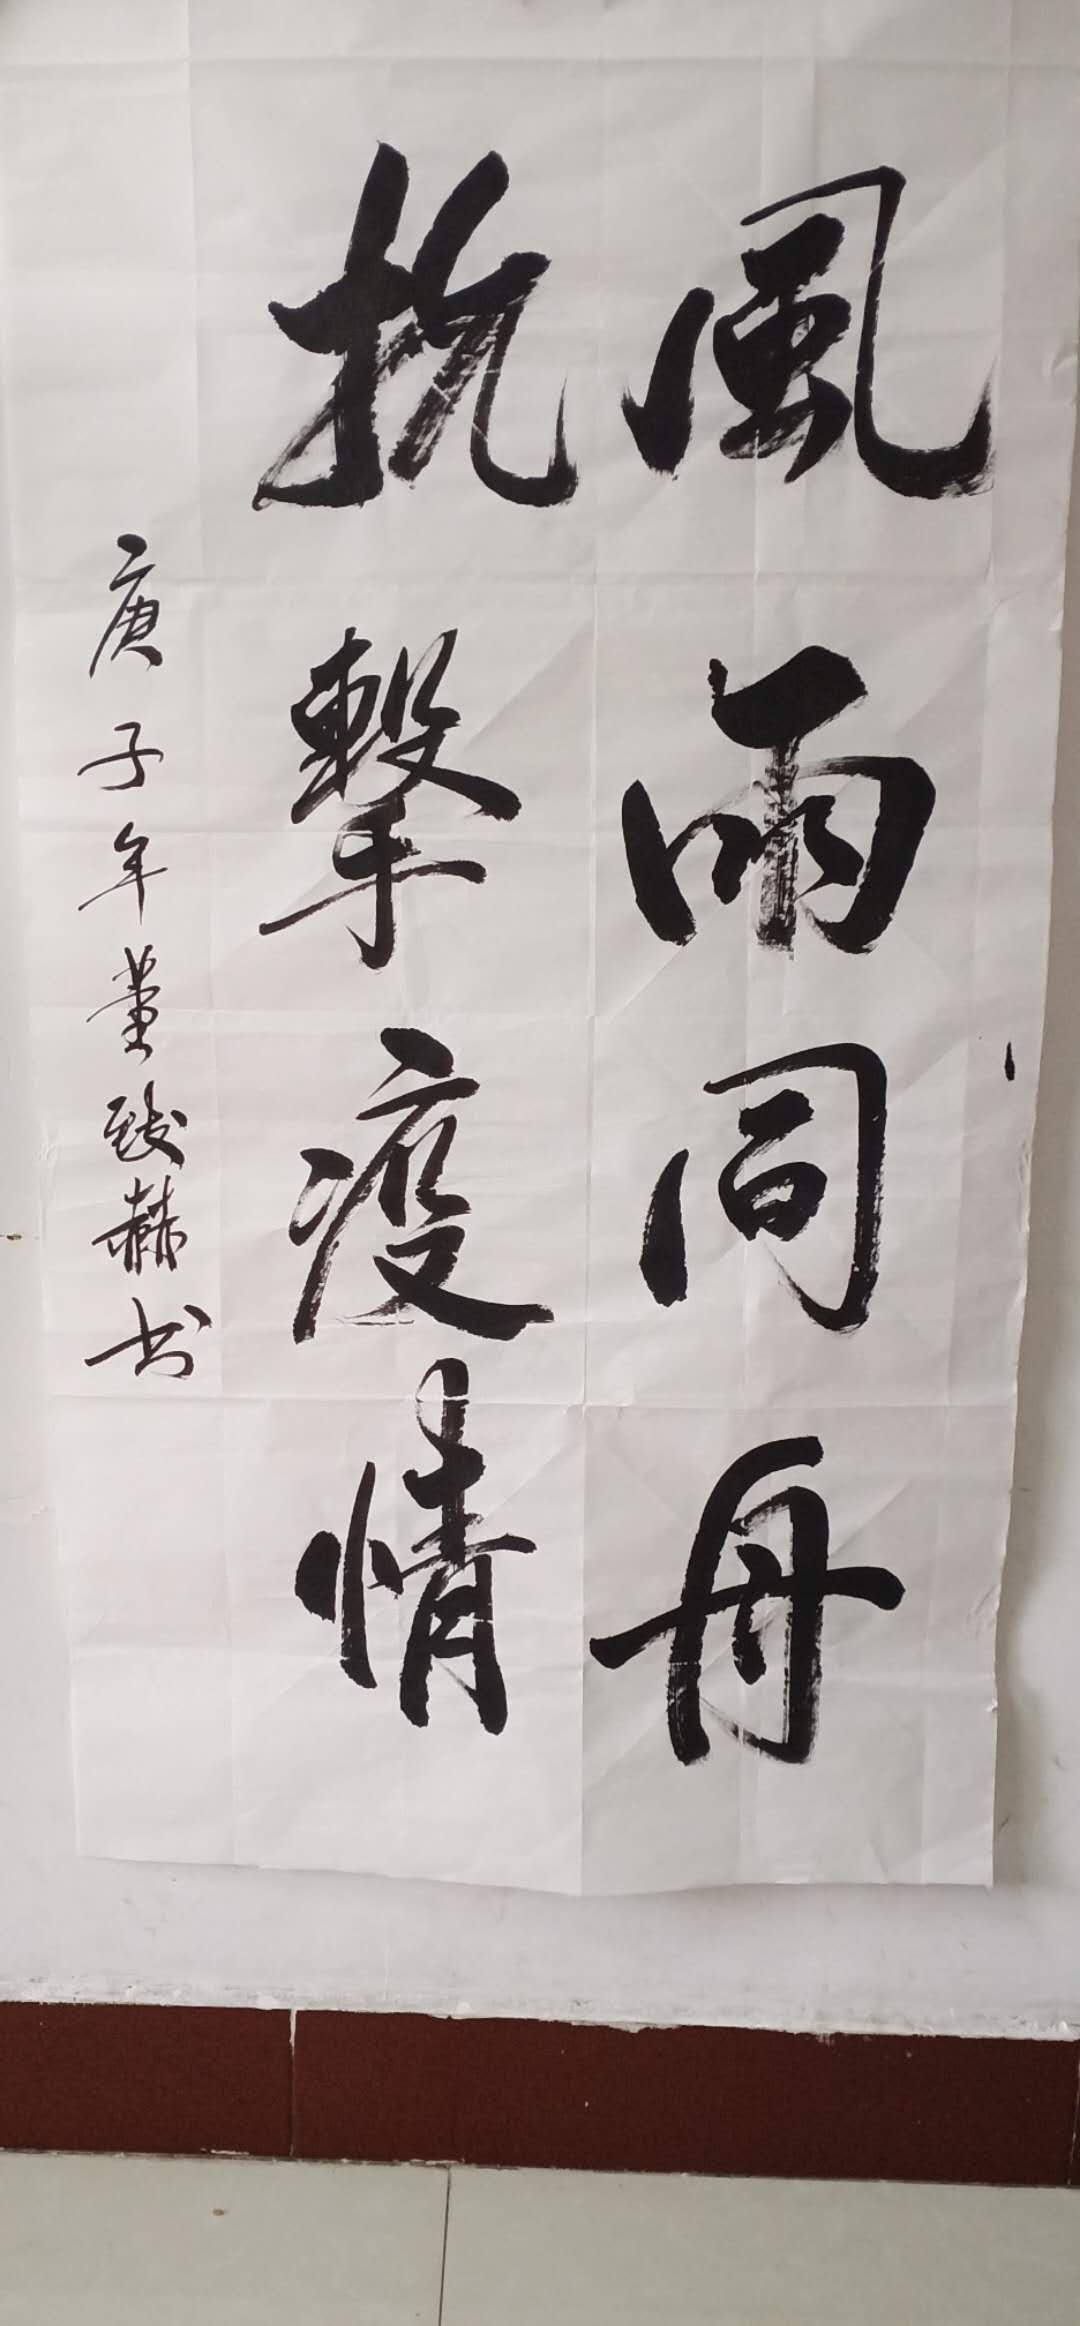 風雨同舟
抗擊疫情
庚子年董致赫书